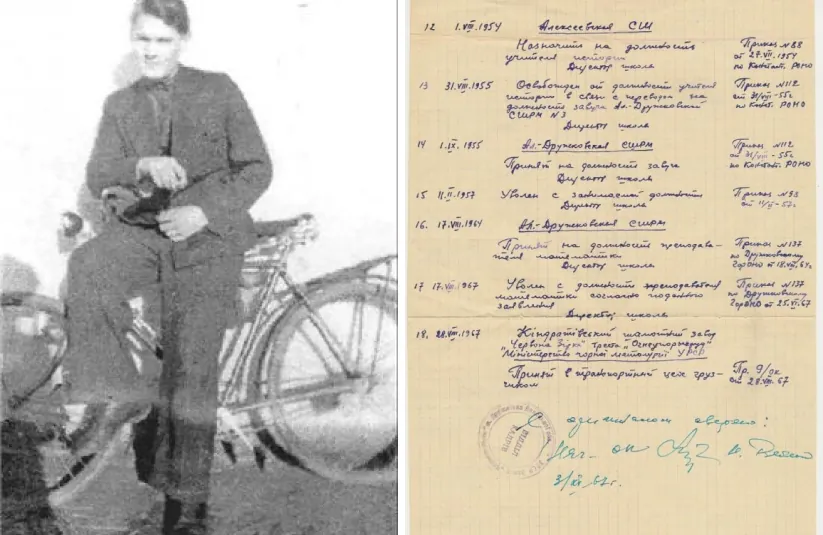 12 1.VIII.1954 Алексеевская СШ
Назначить на должность Приказ №88
учителя истории от 27.VII.1954
Директор школы по Конст. РОНО
13 31.VIII.1955 Освобожден от должности учителя Приказ №112
истории в связи с переводом на от 31/VIII-55г.
должность завуча Ал.-Дружковской по Конст. РОНО
СШРМ №3
Директор школы
14 1.IX.1955 Ал.-Дружковская СШРМ Приказ №112
от 31/VIII-55г.
Принят на должность завуча по Конст. РОНО
Директор школы
15 Уволен с занимаемой должности Приказ №53
Директор школы
16. 17.VIII.1964 Ал.-Дружковская СШРМ
Принят на должность преподава- Приказ №137
теля математики по Дружковскому
Директор школы ГорОНО от 18.VIII.64г.
17 17.VII.1967 Уволен с должности преподавателя Приказ №137
математики согласно поданного по Дружковскому
заявления ГорОНО от 25.VI.67
Директор школы
18. 28.VIII.1967 Кіндратівский шамотний завод
"Червона Зірка" треста "Огнеупорнеруд"
Міністерство чорної металургії УРСР
Принят в транспортный цех груз- Пр. 9/ок
чиком от 28.VIII.67
С оригиналом сверено:
Нач. ОК
3/XI.67г.